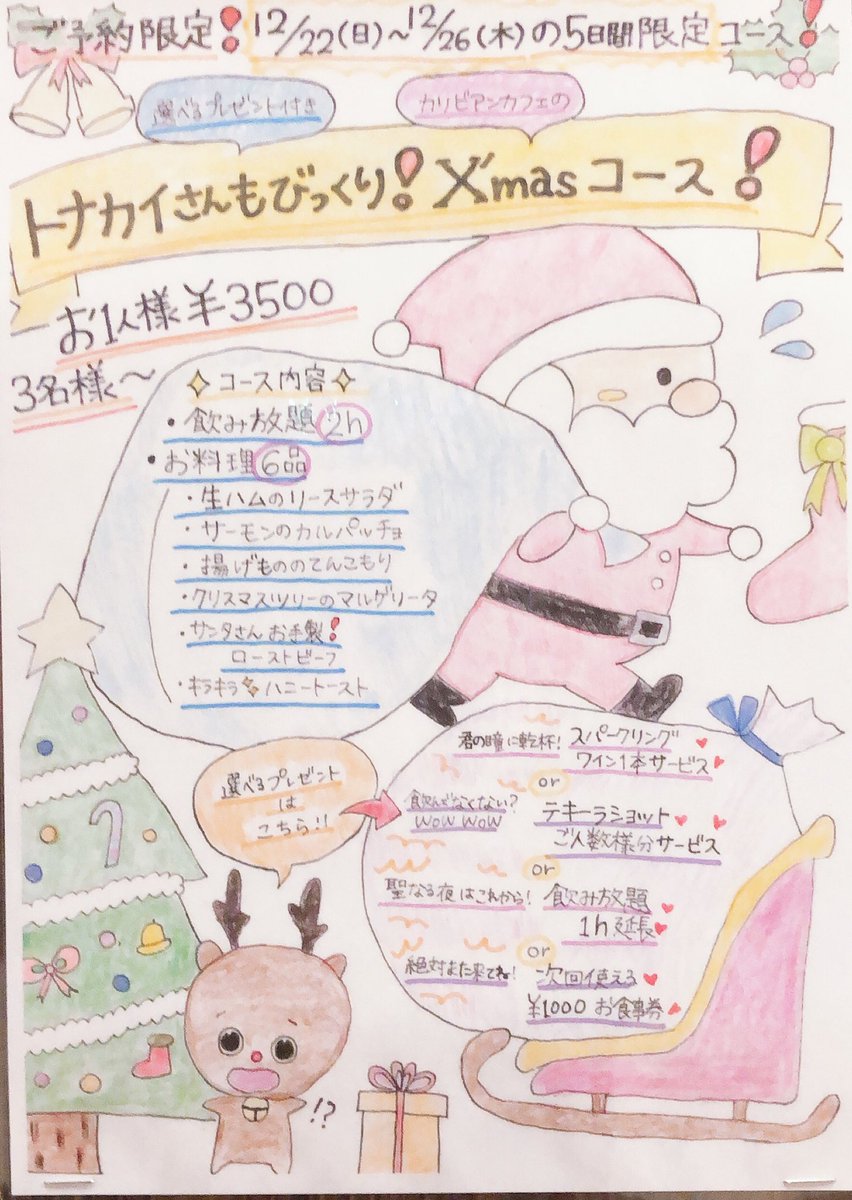 ご予約限定! 12/22(日)~12/26(木)の5日間限定コース!
選べるプレゼント付き
カリビアンカフェの
トナカイさんもびっくり! X'masコース!
お1人様¥3500
3名様~
コース内容
・飲み放題 2h
・お料理 6品
・生ハムのリースサラダ
・サーモンのカルパッチョ
・揚げもののてんこもり
・クリスマスツリーのマルゲリータ
・サンタさんお手製!
ローストビーフ
・キラキラハニートースト
選べるプレゼント
は
こちら!!
君の瞳に乾杯! スパークリング
ワイン1本サービス
or
飲んでなくない? テキーラショット
WOW WOW ご人数様分サービス
or
聖なる夜はこれから! 飲み放題
1h延長
or
絶対また来てね! 次回使える
¥1000 お食事券
!?